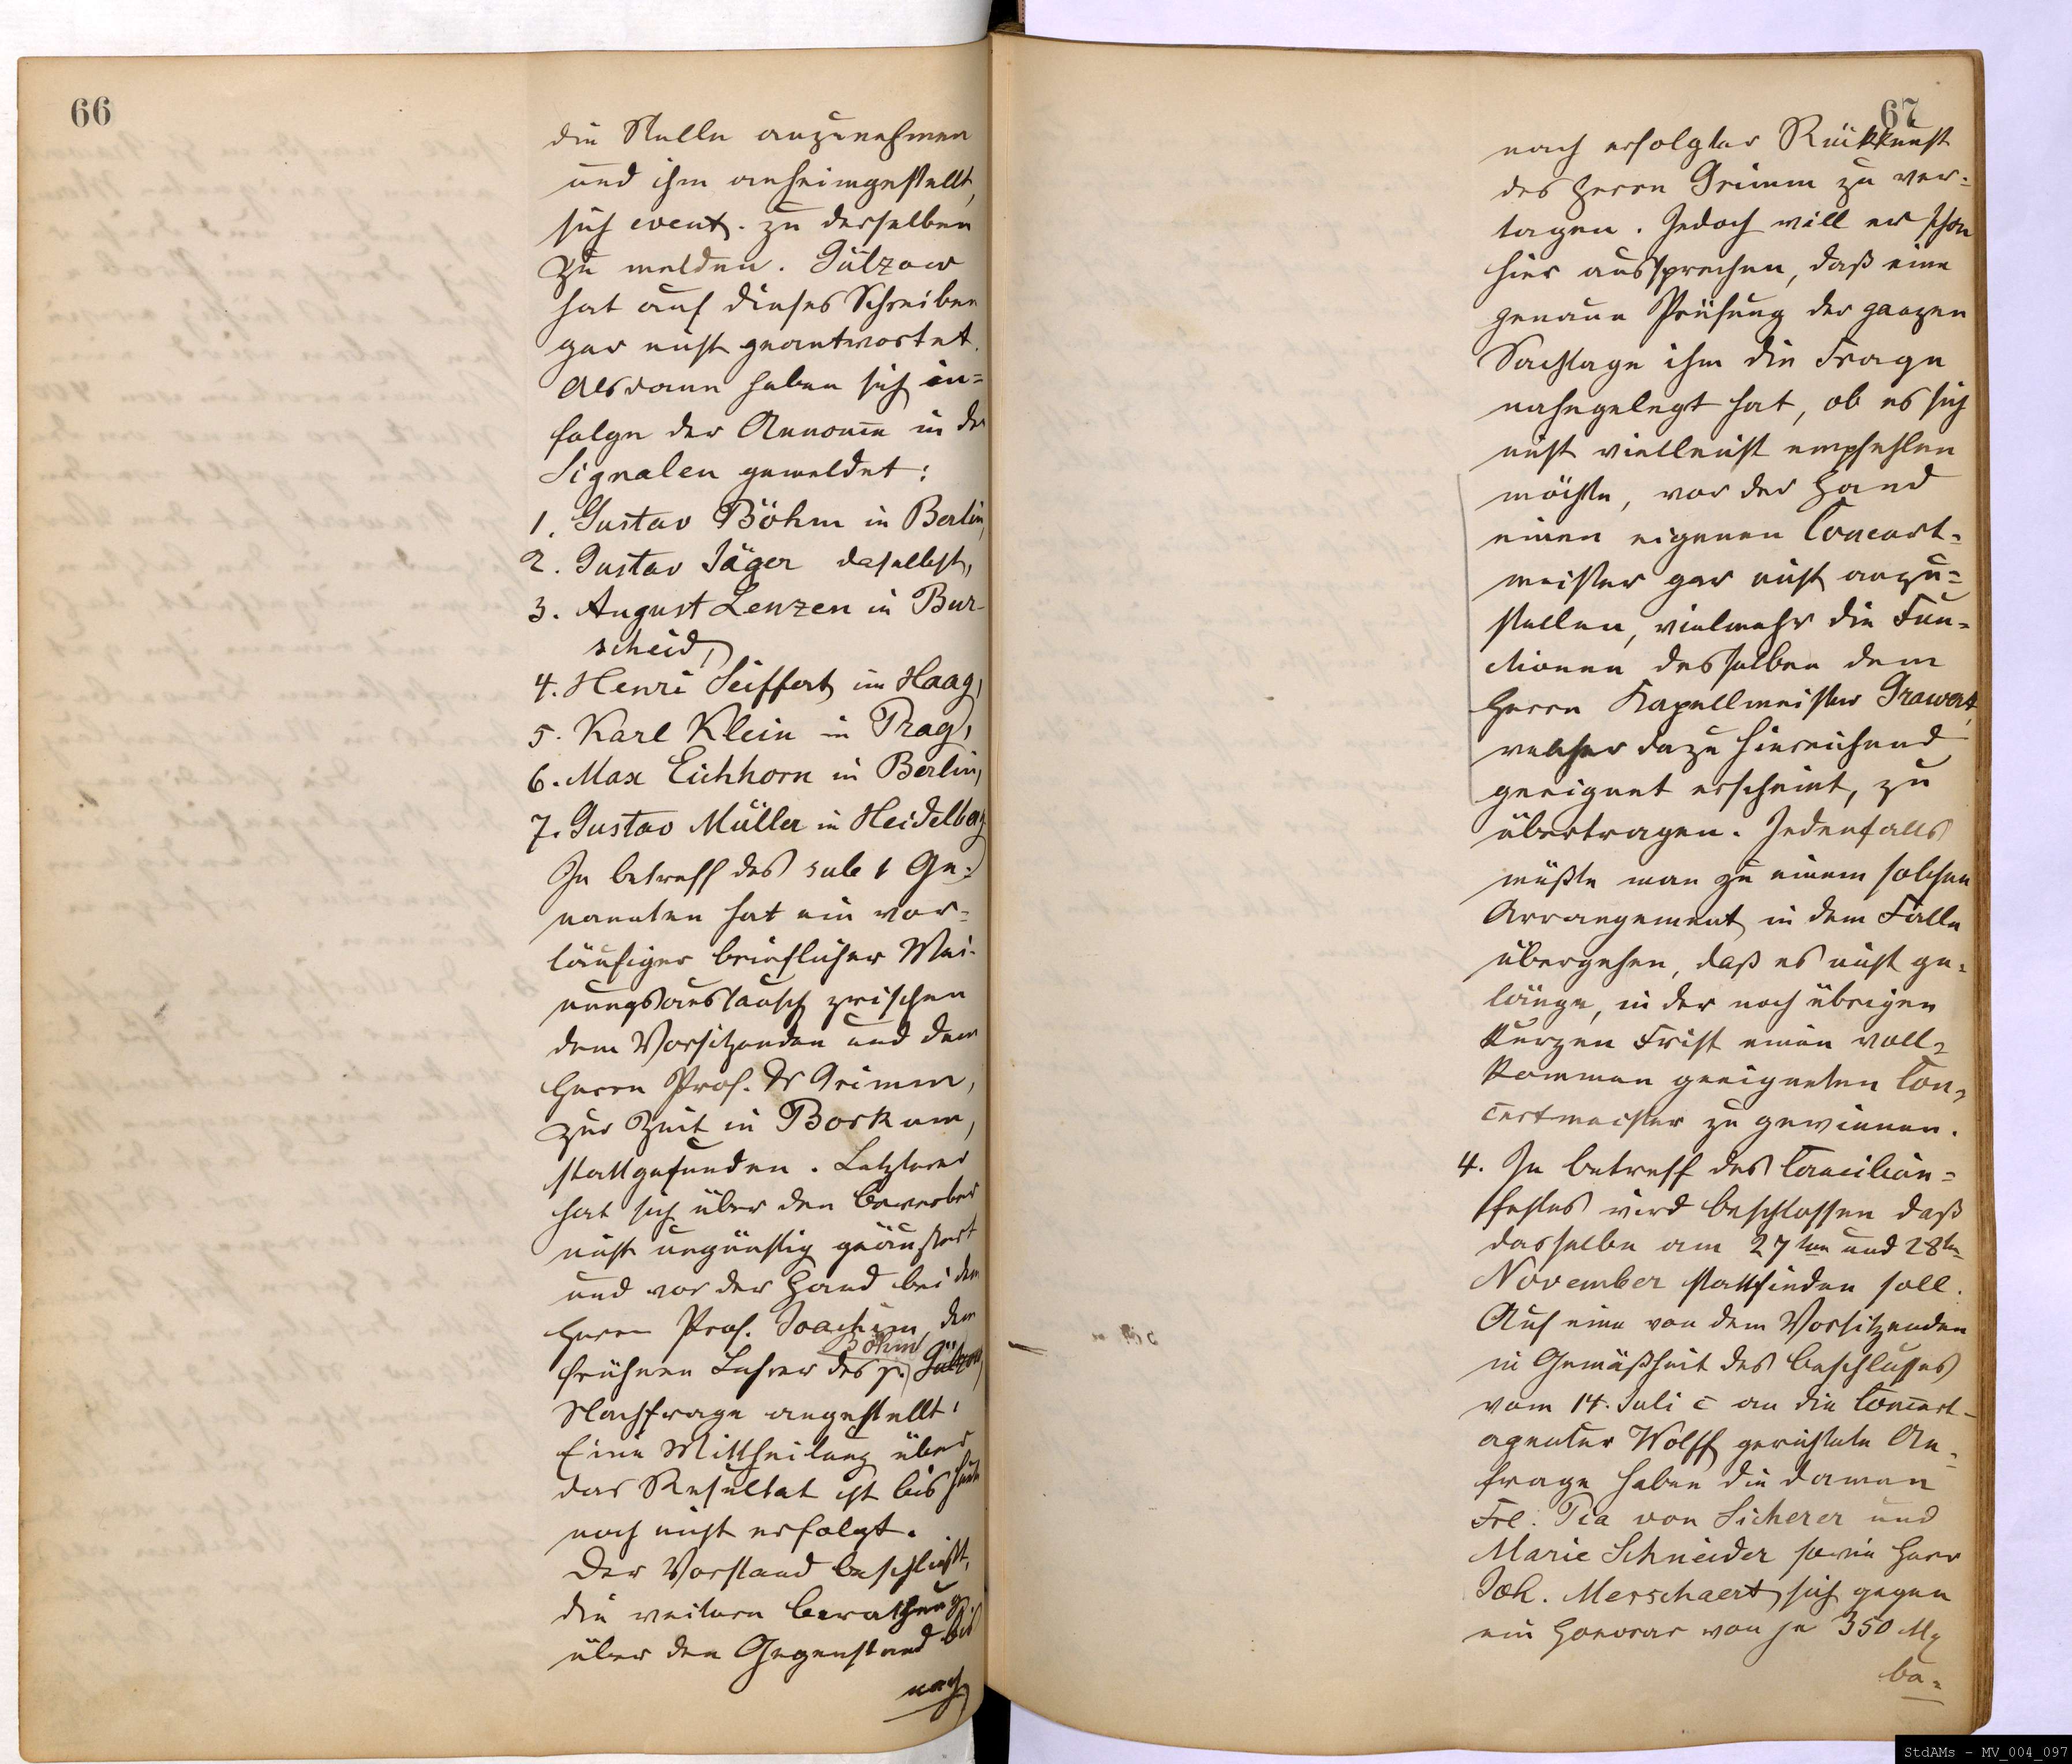 66
die Stelle anzunehmen
und ihm anheimgestellt,
sich event. zu derselben
zu melden. Gülzow
hat auf dieses Schreiben
gar nicht geantwortet.
Alsdann haben sich in=
folge der Annonce in den
Signalen gemeldet:
1. Gustav Böhm in Berlin,
2. Gustav Jäger daselbst,
3. August Lenzen in Bur-
scheid,
4. Henri Seiffert im Haag,
5. Karl Klein in Prag,
6. Max Eichhorn in Berlin,
7. Gustav Müller in Heidelberg
In betreff des sub 1 Ge=
nannten hat ein vor=
läufiger brieflicher Mei-
nungsaustausch zwischen
dem Vorsitzenden und dem
Herrn Prof. Dr Grimm,
zur Zeit in Borkum,
stattgefunden. Letzterer
hat sich über den Bewerber
nicht ungünstig geäußert
und vor der Hand bei dem
Herrn Prof. Joachim, dem
Böhm
früheren Lehrer des p. Gülzow
Nachfrage angestellt.
Eine Mittheilung über
das Resultat ist bis heute
noch nicht erfolgt.
Der Vorstand beschließt,
die weitere Berathung
über den Gegenstand bis
nach
67
nach erfolgter Rückkunft
des Herrn Grimm zu ver=
tagen. Jedoch will er schon
hier aussprechen, daß eine
genaue Prüfung der ganzen
Sachlage ihm die Frage
nahegelegt hat, ob es sich
nicht vielleicht empfehlen
möchte, vor der Hand
einen eigenen Concert-
meister gar nicht anzu=
stellen, vielmehr die Fun=
ctionen desselben dem
Herrn Kapellmeister Grawert,
welcher dazu hinreichend
geeignet erscheint, zu
übertragen. Jedenfalls
müßte man zu einem solchen
Arrangement in dem Falle
übergehen, daß es nicht ge=
länge, in der noch übrigen
kurzen Frist einen voll=
kommen geeigneten Con=
certmeister zu gewinnen.
4. In betreff des Caecilien=
festes wird beschlossen daß
dasselbe am 27ten und 28ten
November stattfinden soll.
Auf eine von dem Vorsitzenden
in Gemäßheit des Beschlusses
vom 14. Juli c an die Concert-
agentur Wolff gerichtete An=
frage haben die Damen
Frl. Pia von Sicherer und
Marie Schneider sowie Herr
Joh. Messchaert sich gegen
ein Honorar von je 350 M
be=
StdAMs - MV_004_097